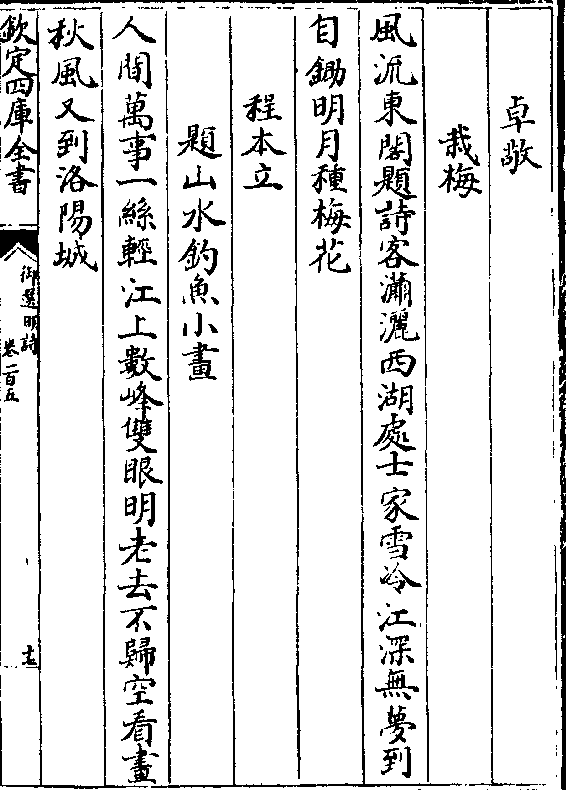 卓敬
栽梅
風流東閣題詩客瀟灑西湖處士家雪冷江深無夢到
自鋤明月種梅花
程本立
題山水釣魚小畫
人間萬事一絲輕江上數峰雙眼明老去不歸空看畫
秋風又到洛陽城
欽定四庫全書
御選明詩
卷一百五
十三